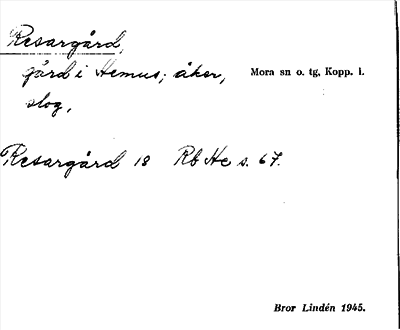 Resargård,
gård i Hemus; åker, Mora sn o. tg, Kopp. l.
slog,
Resargård 18 Rb He s. 67.
Bror Lindén 1945.